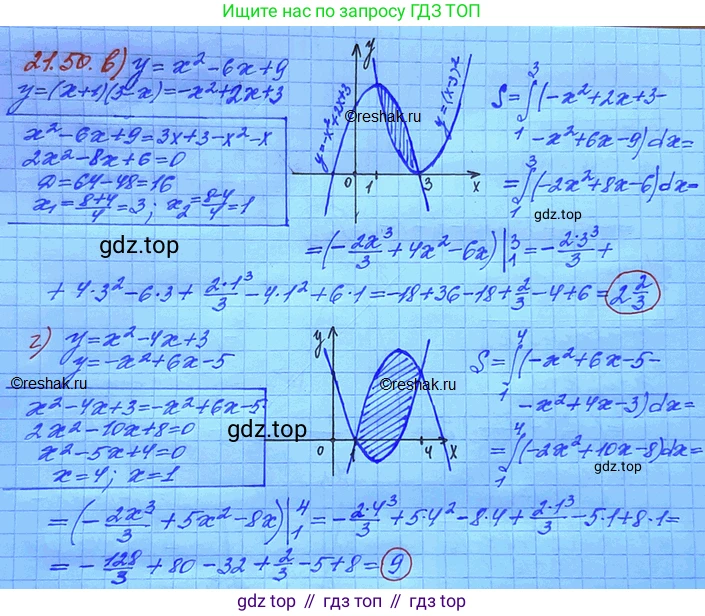 Ищите нас в интернете по запросу ГДЗ ТОП
21.50. в) y = x² - 6x + 9
y = (x+1)(3-x) = -x² + 2x + 3
x² - 6x + 9 = 3x + 3 - x² - x
2x² - 8x + 6 = 0
D = 64 - 48 = 16
x₁ = (8+4)/4 = 3; x₂ = (8-4)/4 = 1
gdz.top
y = -x² + 2x + 3
y
©reshak.ru
y = (x-3)²
0 1 3 x
S = ∫₁³ (-x² + 2x + 3 -
- x² + 6x - 9) dx =
= ∫₁³ (-2x² + 8x - 6) dx =
gdz.top
= (-2x³/3 + 4x² - 6x) |₁³ = -2·3³/3 +
+ 4·3² - 6·3 + 2·1³/3 - 4·1² + 6·1 = -18 + 36 - 18 + 2/3 - 4 + 6 = 2 2/3
г) y = x² - 4x + 3
y = -x² + 6x - 5
©reshak.ru
x² - 4x + 3 = -x² + 6x - 5
2x² - 10x + 8 = 0
x² - 5x + 4 = 0
x = 4; x = 1
gdz.top
y
©reshak.ru
0 1 4 x
S = ∫₁⁴ (-x² + 6x - 5 -
- x² + 4x - 3) dx =
= ∫₁⁴ (-2x² + 10x - 8) dx =
gdz.top
= (-2x³/3 + 5x² - 8x) |₁⁴ = -2·4³/3 + 5·4² - 8·4 + 2·1³/3 - 5·1 + 8·1 =
= -128/3 + 80 - 32 + 2/3 - 5 + 8 = 9
gdz.top // гдз.топ // гдз топ